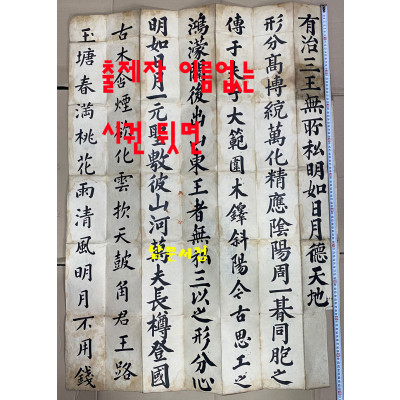 有治三王無所私明如日月德天地
形分髙博統萬化精應陰陽周一碁同胞之
傳于夫子大範圍木鐸斜陽今古思工之
鴻濛開後出山東王者無 三以之形分心
明如日月一元聖數彼山河 夫長樽登國
古木含煙 化雲 天鼓角君王路
玉塘春滿桃花雨清風明月不用錢
출제자 이름없는
시전 뒷면